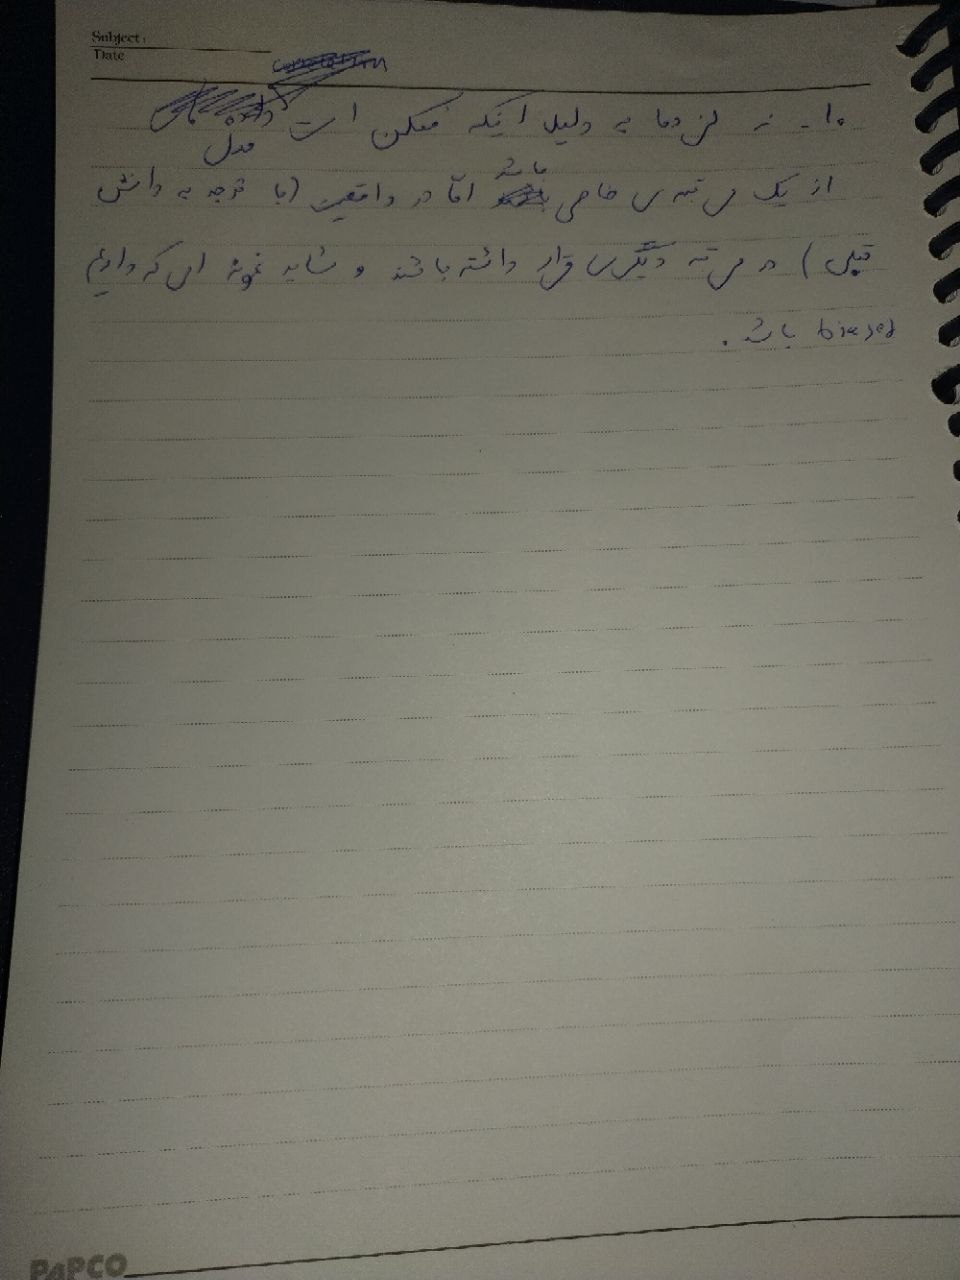 Subject:
Date
۱۰- نه لزوما به دلیل اینکه ممکن است مدل
از یک مرتبه ی خاصی باشد اما در واقعیت (با توجه به دانش
قبلی) در مرتبه دیگری قرار داشته باشد و شاید نمونه ای که داریم
biased باشد.
PAPCO